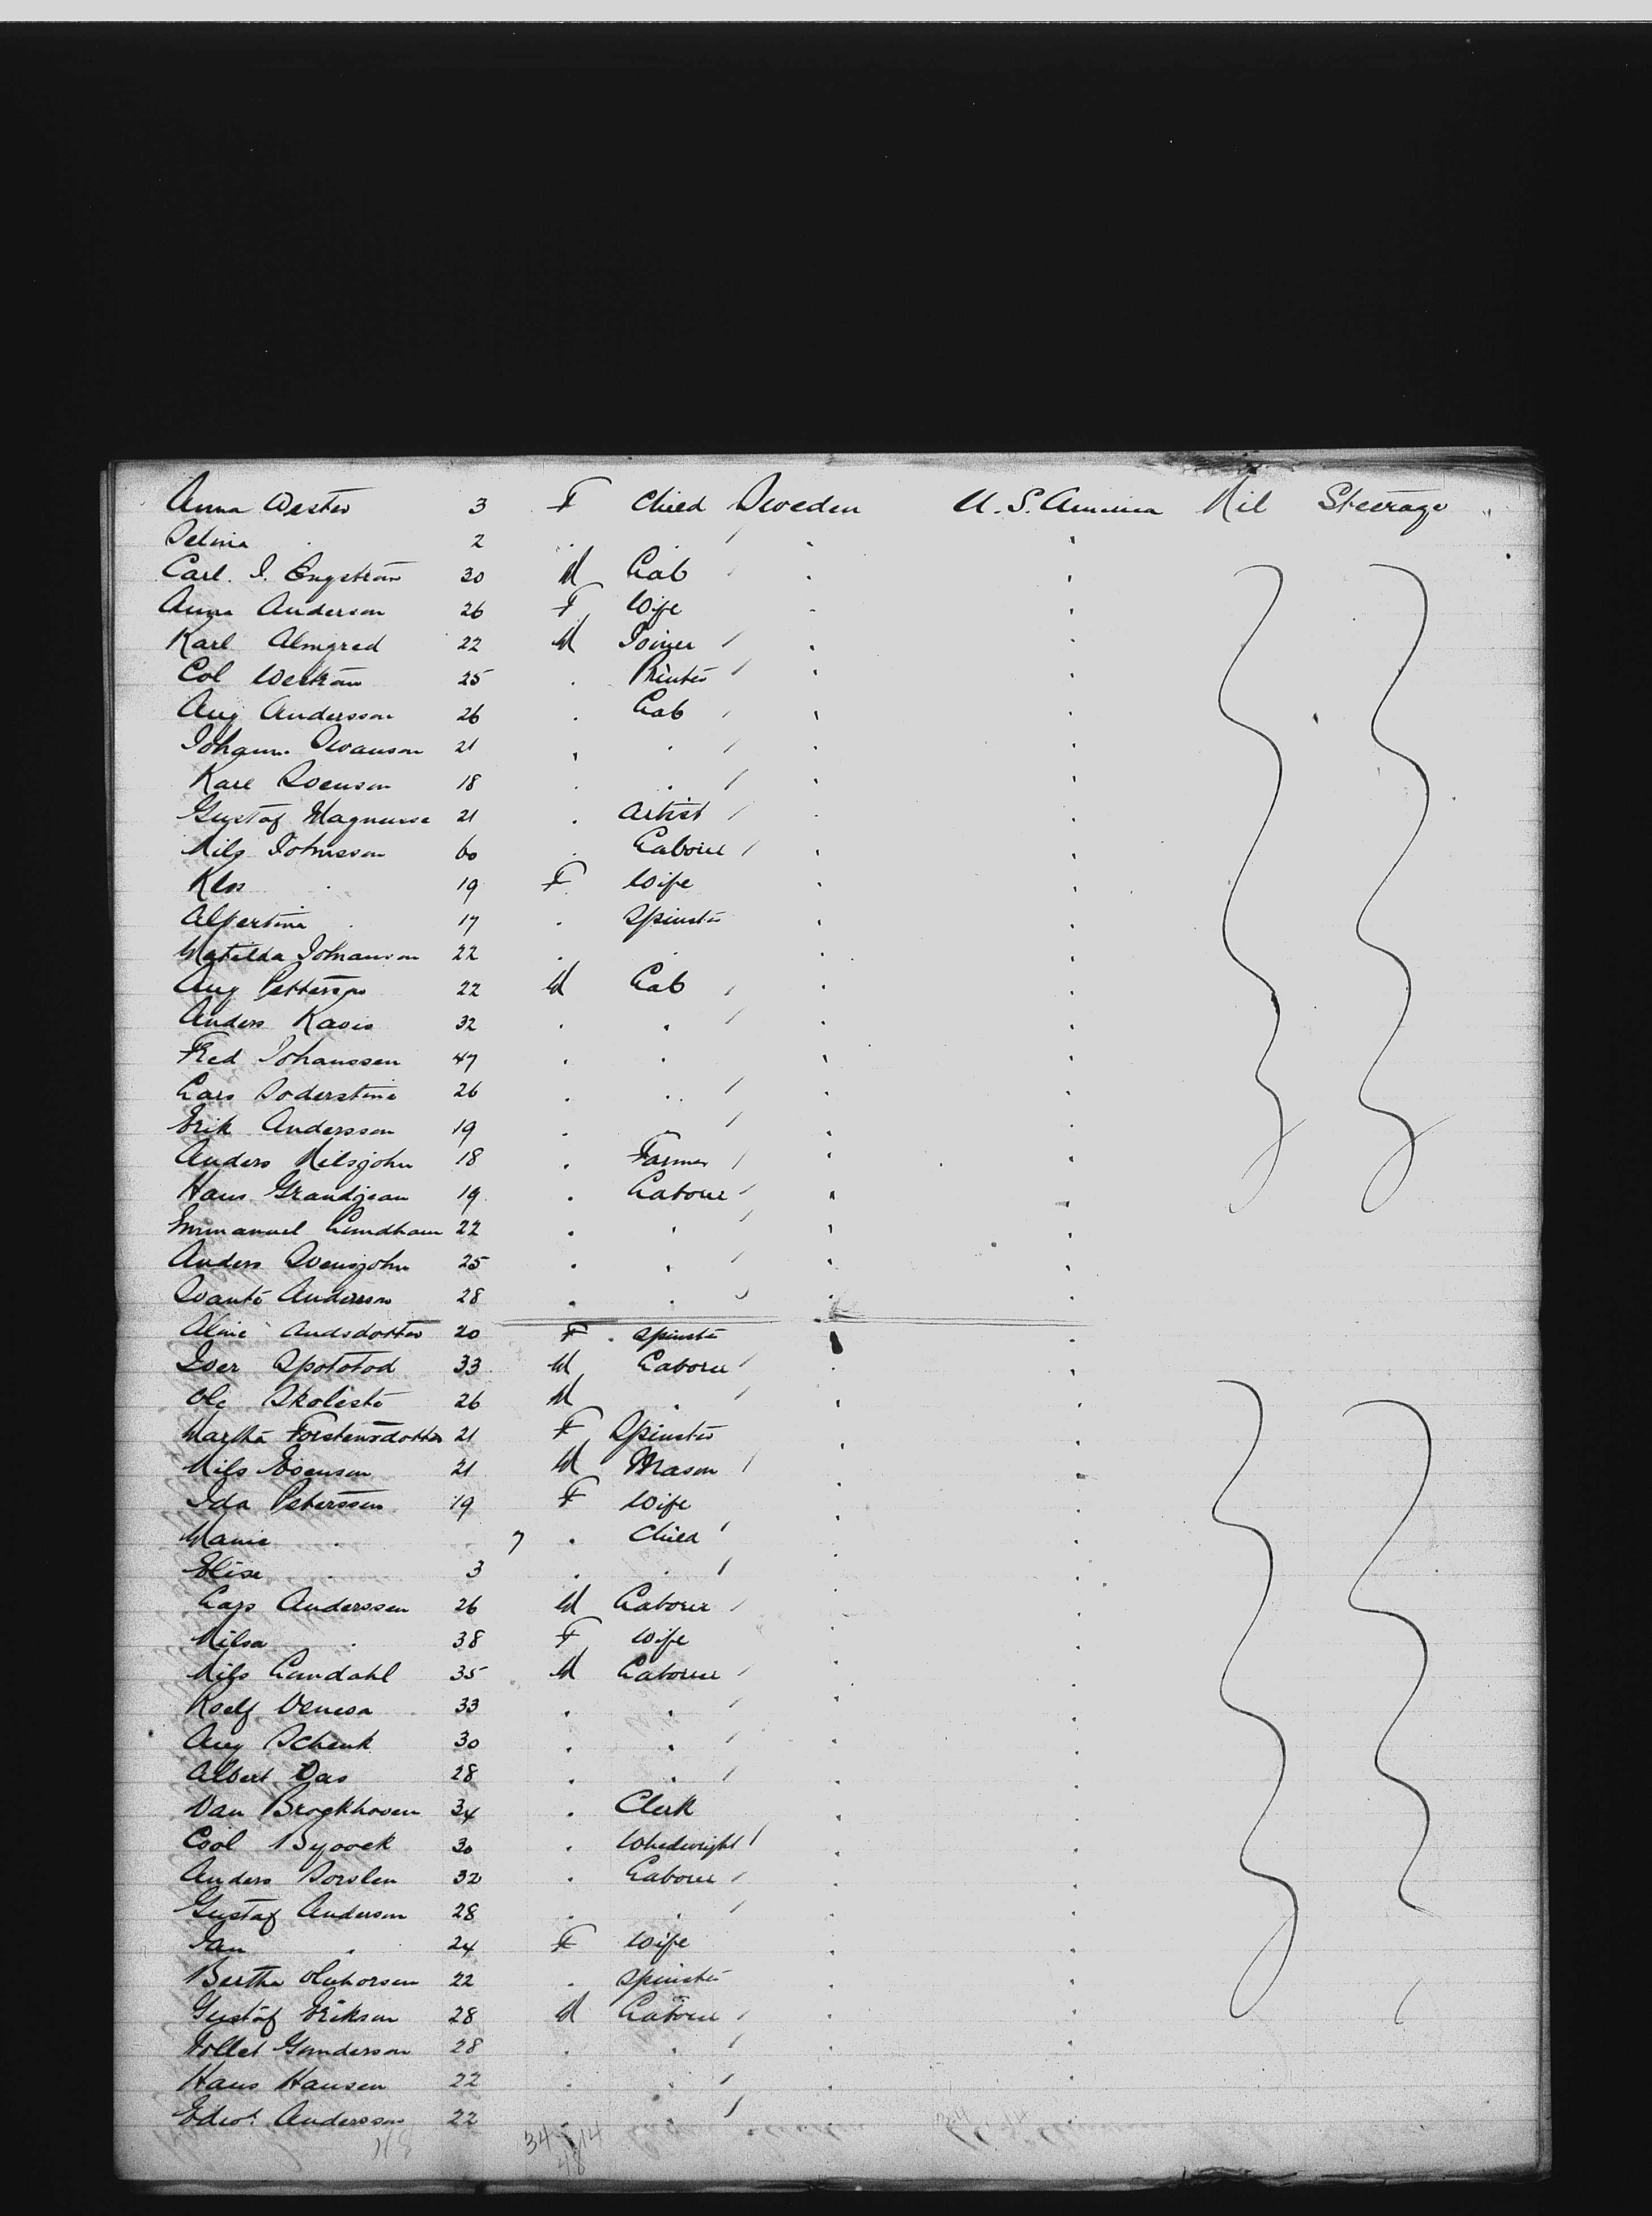 Anna Oester 3 F Child Sweden U.S. America Nil Steerage
Selina " 2 " " " "
Carl. I. Engstrom 30 M Lab " "
Anna Anderson 26 F Wife " "
Karl Almgred 22 M Joiner " "
Col Westrom 25 " Printer " "
Aug Andersson 26 " Lab " "
Johann Swanson 21 " " " "
Karl Svenson 18 " " " "
Gustaf Magnusse 21 " Artist " "
Nils Johnsson 60 " Labour " "
19 F Wife " "
Alpertina " 17 " Spinster " "
Matilda Johanson 22 " " " "
Aug Petterson 22 M Lab " "
Anders Kavis 32 " " " "
Fred Johanssen 47 " " " "
Lars Soderstine 26 " " " "
Erik Andersson 19 " " " "
Anders Nilsjohn 18 " Farmer " "
Hans Grandjean 19 " Labour " "
Emmanuel Lundham 22 " " " "
Anders Svensjohn 25 " " " "
Svante Anderson 28 " " " "
Aline Andsdotter 20 F Spinster " "
Iver Spototod 33 M Labour " "
Ole Skoleste 26 M " " "
Martha Torstensdotter 21 F Spinster " "
Nils Evenson 21 M Mason " "
Ida Peterssen 19 F Wife " "
Marie " 7 " Child " "
Elise " 3 " " " "
Lars Anderssen 26 M Labour " "
Nilsa " 38 F Wife " "
Nils Lundahl 35 M Labour " "
Roelf Venesa 33 " " " "
Aug Schenk 30 " " " "
Albert Das 28 " " " "
Van Brogkhoven 34 " Clerk " "
Cool Byoock 30 " Wheelwright " "
Anders Sorslen 32 " Labour " "
Gustaf Anderson 28 " " " "
Jan " 24 F Wife " "
Bertha 22 " Spinster " "
Gustaf Erikson 28 M Labour " "
Tollet Gunderson 28 " " " "
Hans Hansen 22 " " " "
Edwd. Andersson 22 " " " "
48 34 14
48